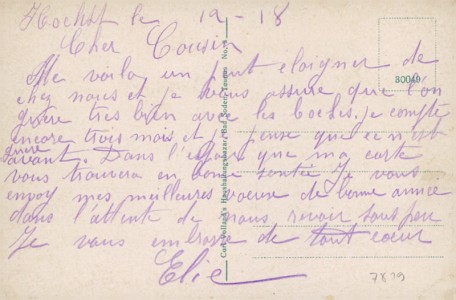 Hochst le 19-18
Cher Cousin
Me voila un peut éloigner de
chez nous et je vous assure que l'on
guere tres bien avec les Boches. je compte
encore trois mois et je pense que ce n'est
guere
avant. Dans l'espoir que ma carte
vous trouvera en bonne santée Je vous
envoy mes meilleures voeux de bonne année
dans l'attente de nous revoir sous peu
Je vous embrasse de tout coeur
Elie
80040
7819